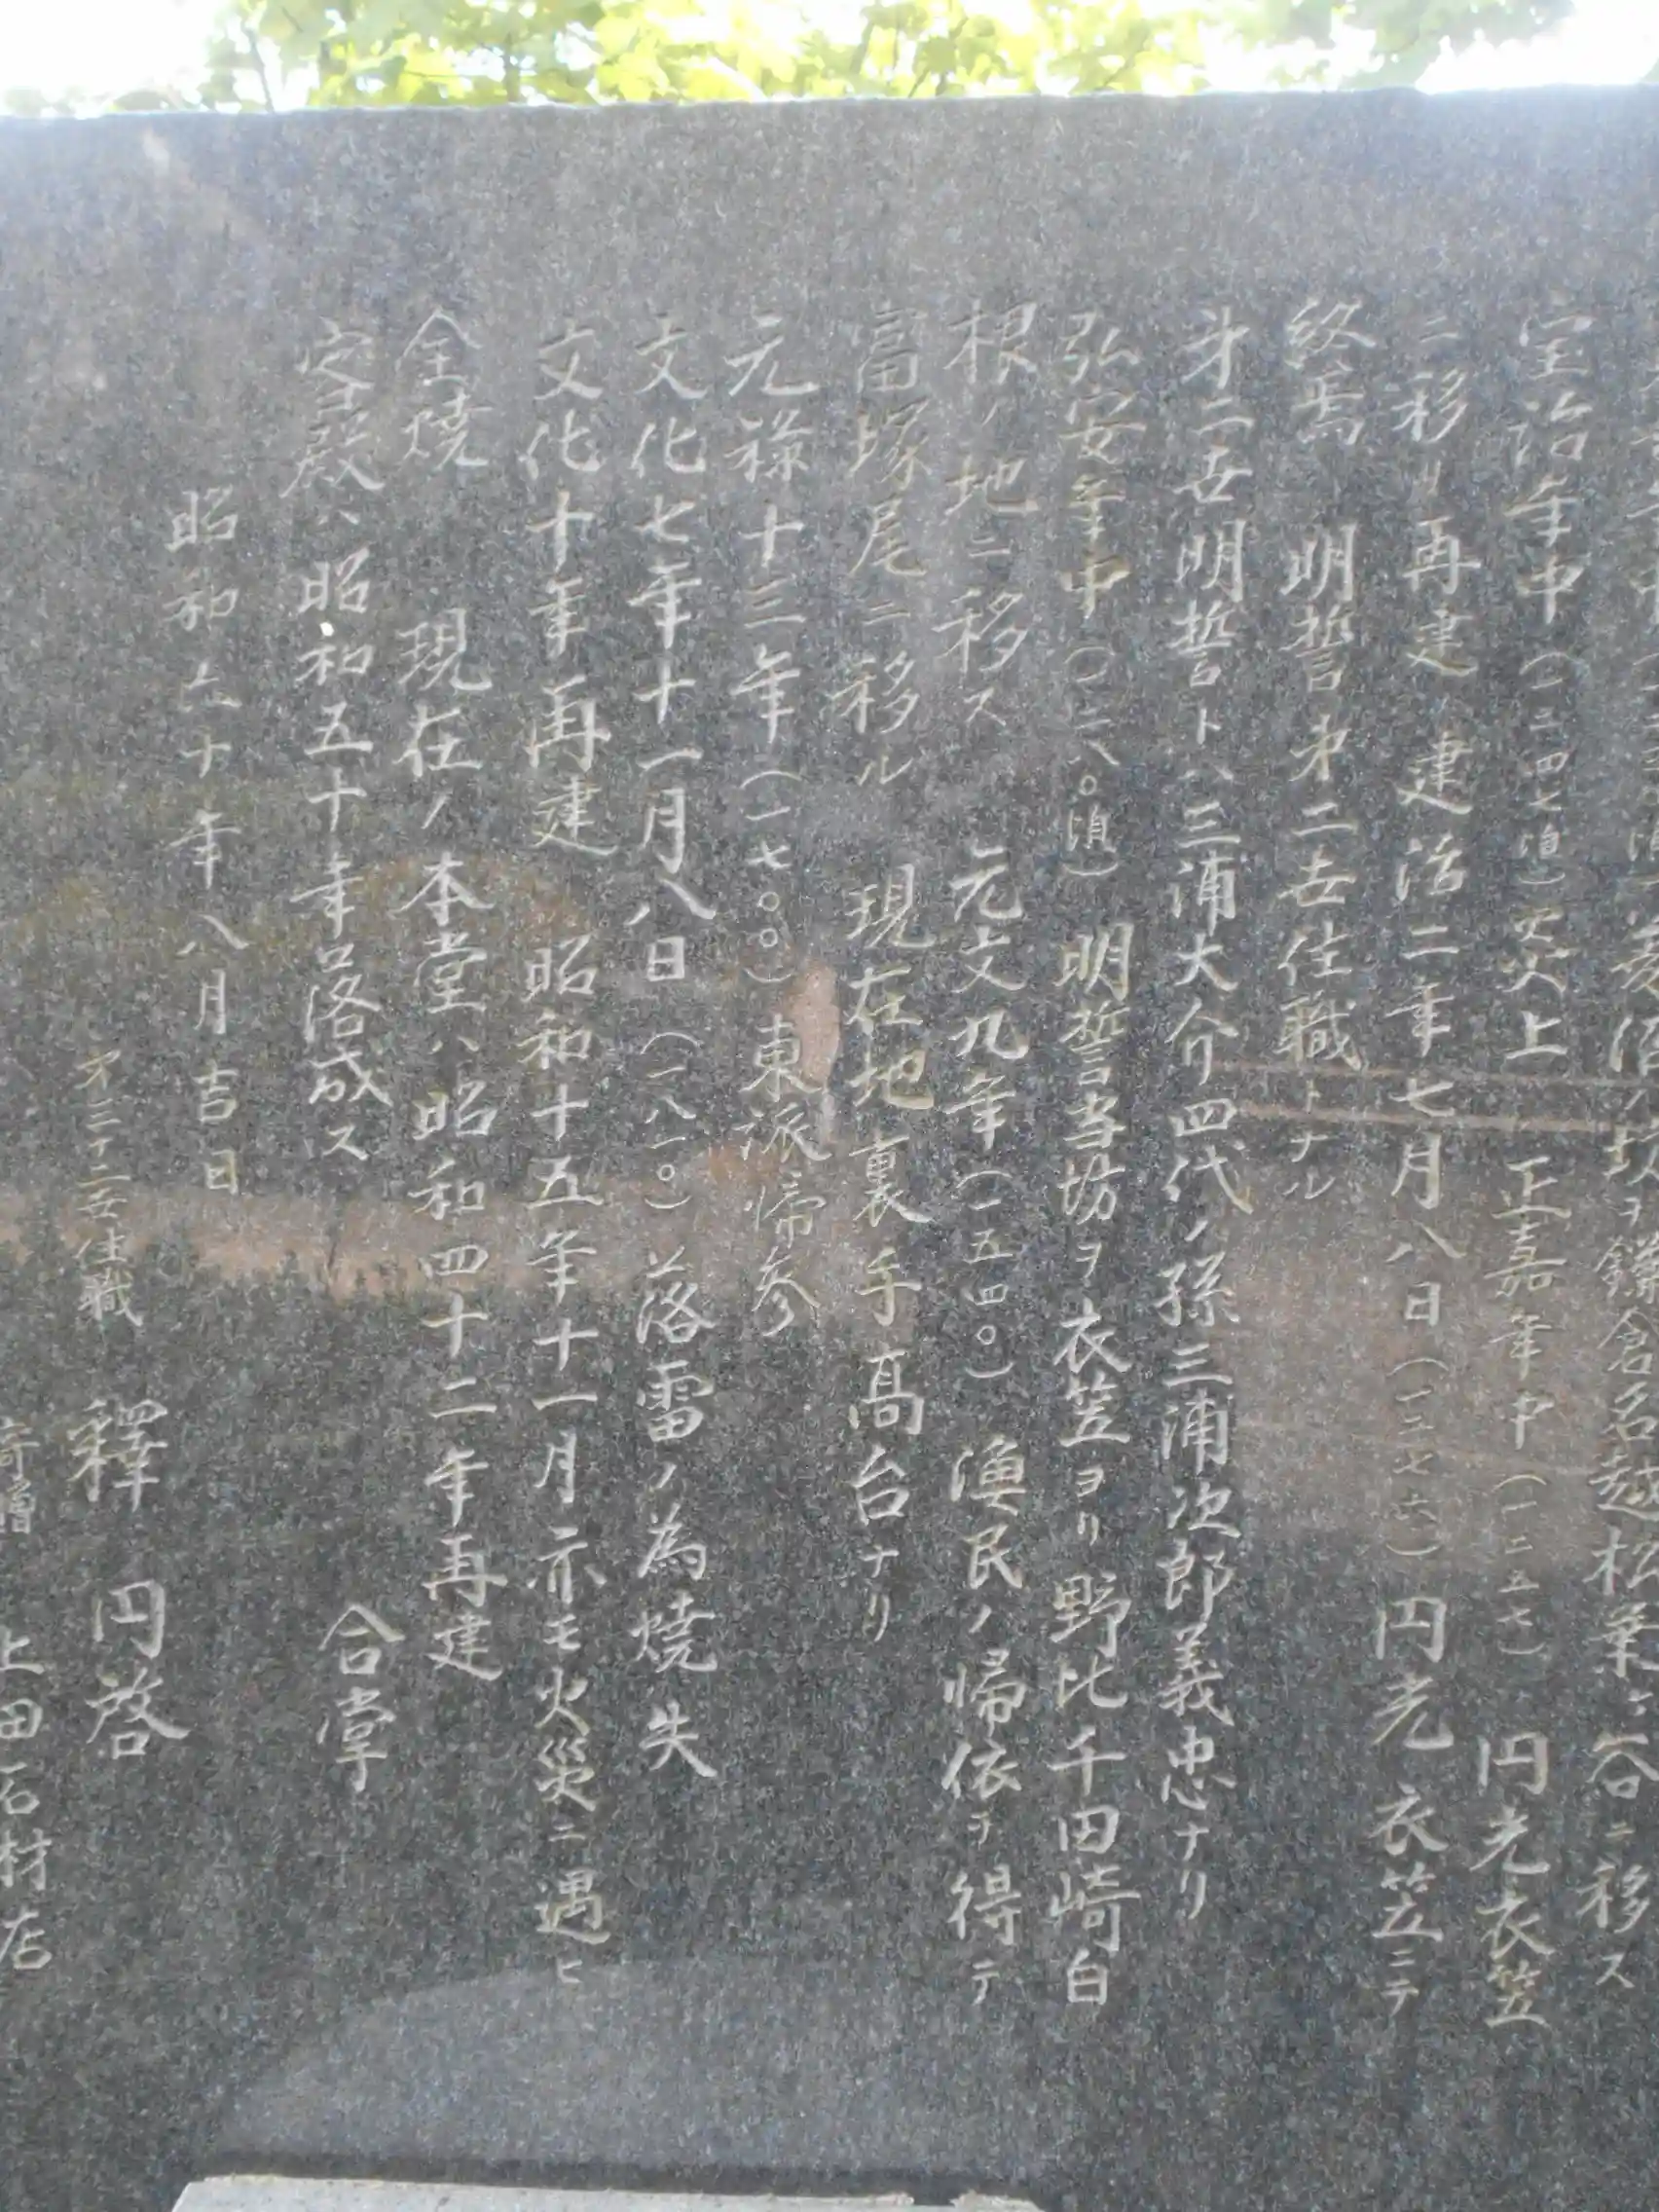 菱沼ノ坊ヲ鎌倉名越松葉ヶ谷ニ移ス
宝治年中（一二四七頃）炎上 正嘉年中（一二五七）円光衣笠
ニ移リ再建 建治二年七月八日（一二七六）円光 衣笠ニテ
終焉 明誓才二世住職トナル
才二世明誓トハ三浦大介四代ノ孫三浦次郎義忠ナリ
弘安年中（一二八〇頃）明誓当坊ヲ衣笠ヨリ野比千田崎白
根ノ地ニ移ス 元文九年（一五四〇）漁民ノ帰依ヲ得テ
富塚尾ニ移ル 現在地裏手高台ナリ
元禄十三年（一七〇〇）東派帰参
文化七年十一月八日（一八一〇）落雷ノ為焼失
文化十年再建 昭和十五年十一月亦モ火災ニ遇ヒ
全焼 現在ノ本堂ハ昭和四十二年再建
客殿ハ昭和五十年落成ス 合掌
昭和六十年八月吉日
才三十二世住職 釋 円啓
寄贈 上田石材店